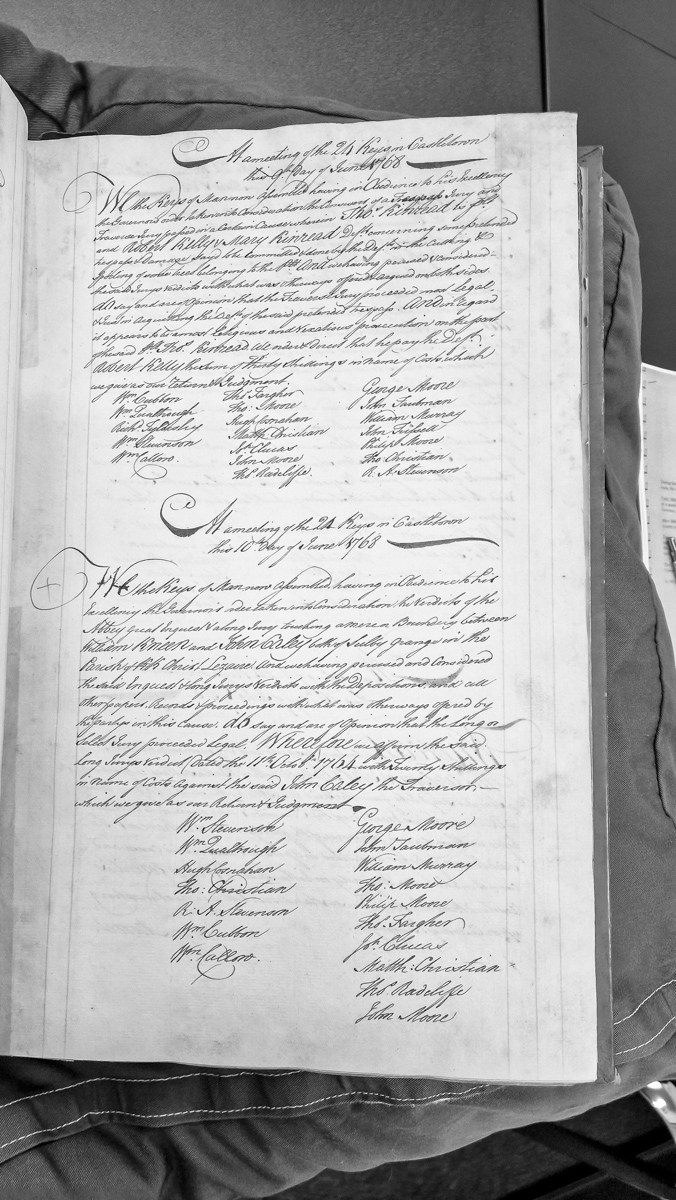 At a meeting of the 24 Keys in Castletown
this 9th Day of June 1768
We the Keys of Mann now Assembled having in Obedience to his Excellency
the Governors order taken into Consideration the Traverse of a Trespass Jury and
Traverse Jury passed in a Certain Cause wherein Thos. Kinread be pltf
and Robert Kelly & Mary Kinread Defts concerning some pretended
trespass & Damage Said to be Committed & done by the Defts in the Cutting &
Spoiling of some belonging to the Pltf And we having perused & Considered
the said Jurys Verdicts with what was otherways offered & argued on both sides
do say and are of Opinion that the Traverse Jury proceeded most Legal
& Just in Acquitting the Defts of the said pretended trespass. And in regard
it appears to be a most Litigious and Vexatious prosecution on the part
of the said Pltf Thos. Kinread We order & direct that he pay the Deft
Robert Kelly the Sum of Thirty Shillings in name of Costs, which
we give as our Return & Judgment.
Wm Cubbon Thos Fargher George Moore
Wm Qualtrough Tho: Moore John Taubman
Richd Tyldesley Hugh Conahan William Murray
Wm Stevenson Matth Christian John Frissell
Wm Callow. Jon Clucas Philip Moore
John Moore Tho Christian
Thos Radcliffe. R. A. Stevenson
At a meeting of the 24 Keys in Castletown
this 10th Day of June 1768
We the Keys of Mann now Assembled, having in Obedience to his
Excellency the Governor's order taken into Consideration the Verdicts of the
Abbey Great Enquest & a long Jury touching a mere or Boundery between
William Kneen and John Caley both of Sulby Grange in the
Parish of Kk Christ Lezaire And we having perused and Considered
the said Enquest & Long Jurys Verdicts with the Depositions and all
other papers, Records & proceedings with what was otherways offered by
the partys in this Cause. do say and are of Opinion that the Long or
Select Jury proceeded Legal. Wherefore we affirm the Said
Long Jurys Verdict (Dated the 11th Octobr 1764 with Twenty Shillings
in name of Costs Against the said John Caley the Traversor
which we give as our Return & Judgment
Wm Stevenson George Moore
Wm Qualtrough John Taubman
Hugh Conahan William Murray
Tho: Christian Tho: Moore
R: A. Stevenson Philip Moore
Wm Cubbon Tho. Fargher
Wm Callow. Jon Clucas
Matth: Christian
Thos Radcliffe
John Moore